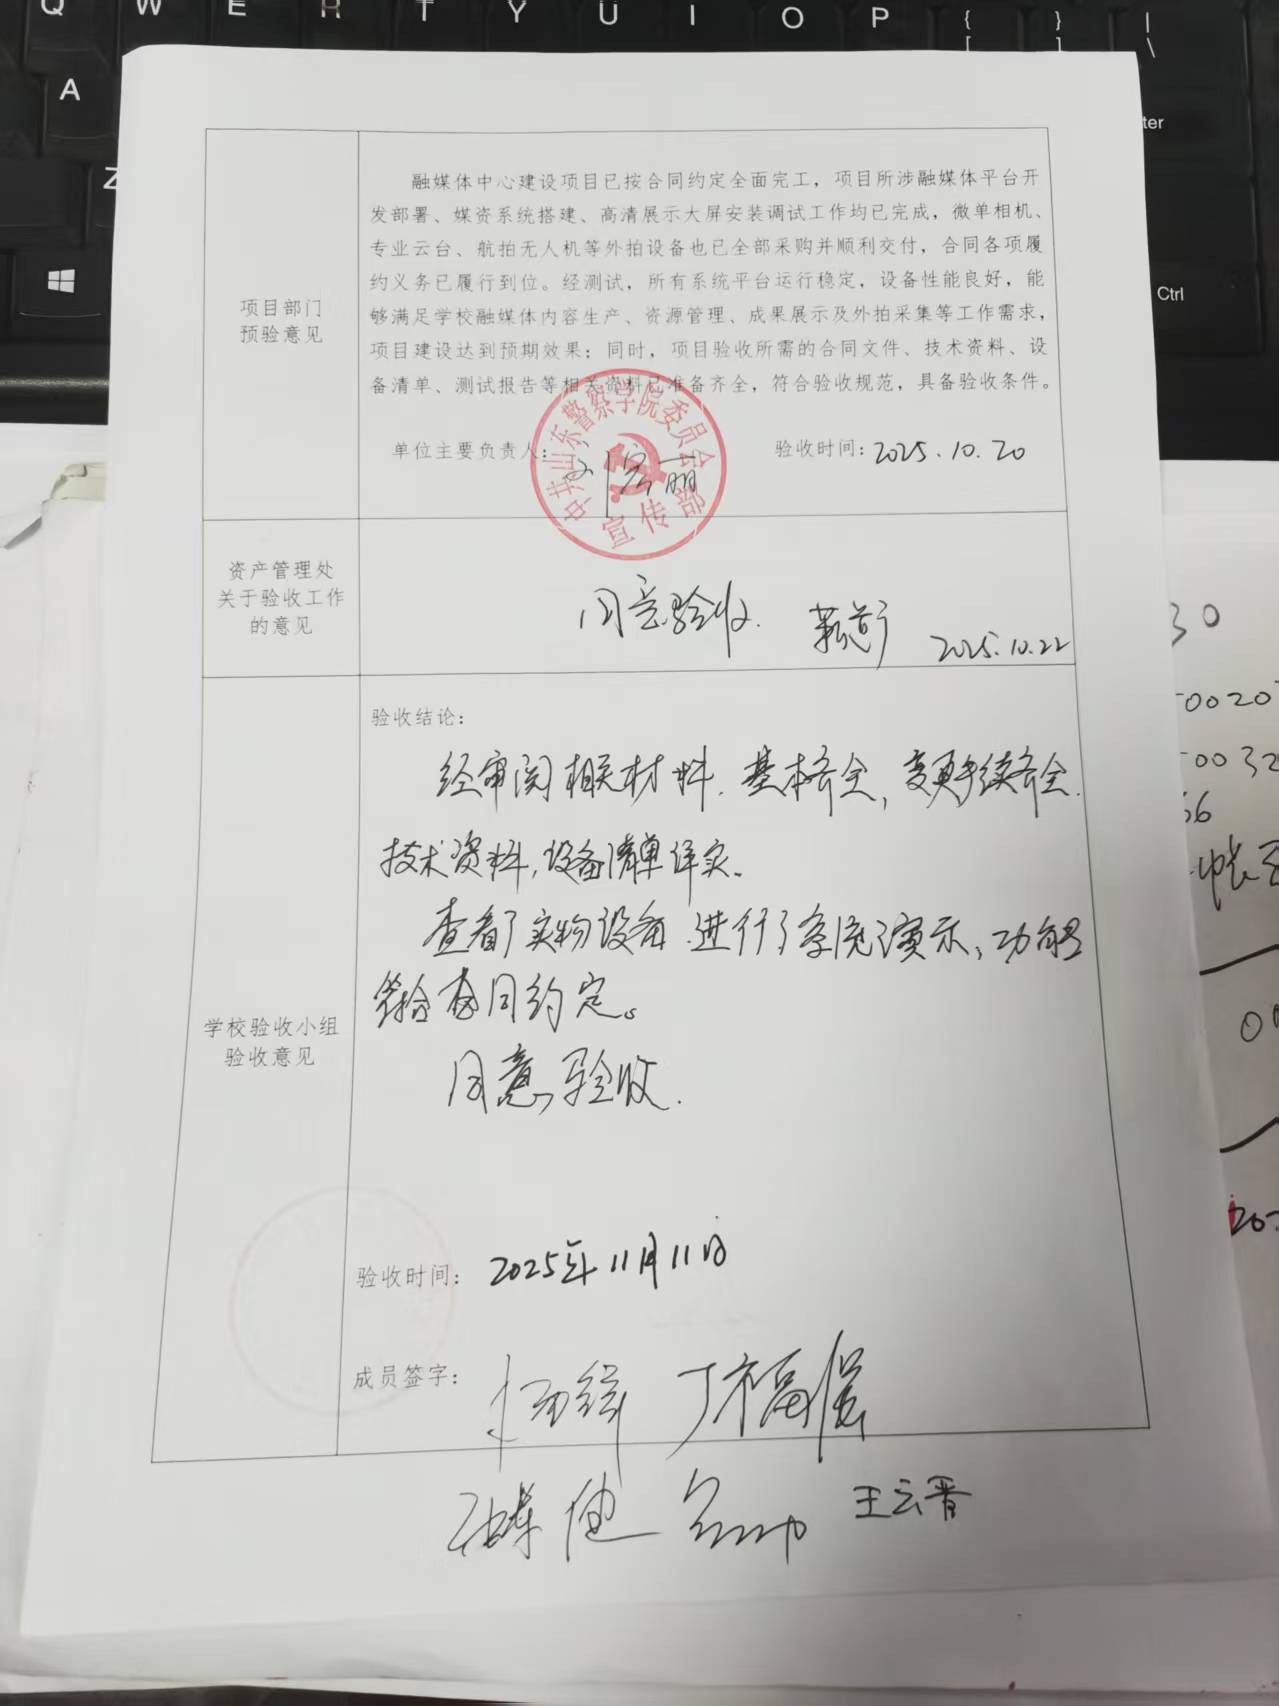 Q W E R T Y U I O P { } |
[ ] \
A
Z
ter
Ctrl
项目部门
预验意见
融媒体中心建设项目已按合同约定全面完工，项目所涉融媒体平台开
发部署、媒资系统搭建、高清展示大屏安装调试工作均已完成，微单相机、
专业云台、航拍无人机等外拍设备也已全部采购并顺利交付，合同各项履
约义务已履行到位。经测试，所有系统平台运行稳定，设备性能良好，能
够满足学校融媒体内容生产、资源管理、成果展示及外拍采集等工作需求，
项目建设达到预期效果；同时，项目验收所需的合同文件、技术资料、设
备清单、测试报告等相关资料已准备齐全，符合验收规范，具备验收条件。
单位主要负责人：
验收时间：2025.10.20
中共山东警察学院委员会
宣传部
资产管理处
关于验收工作
的意见
同意验收.
2025.10.22
学校验收小组
验收意见
验收结论：
经审阅相关材料.基本齐全，变更手续齐全.
技术资料，设备清单详实。
查看了实物设备.进行了系统演示，功能
符合合同约定。
同意验收.
验收时间：2025年11月11日
成员签字：
丁福
健
王云晋
30
0020
0032
66